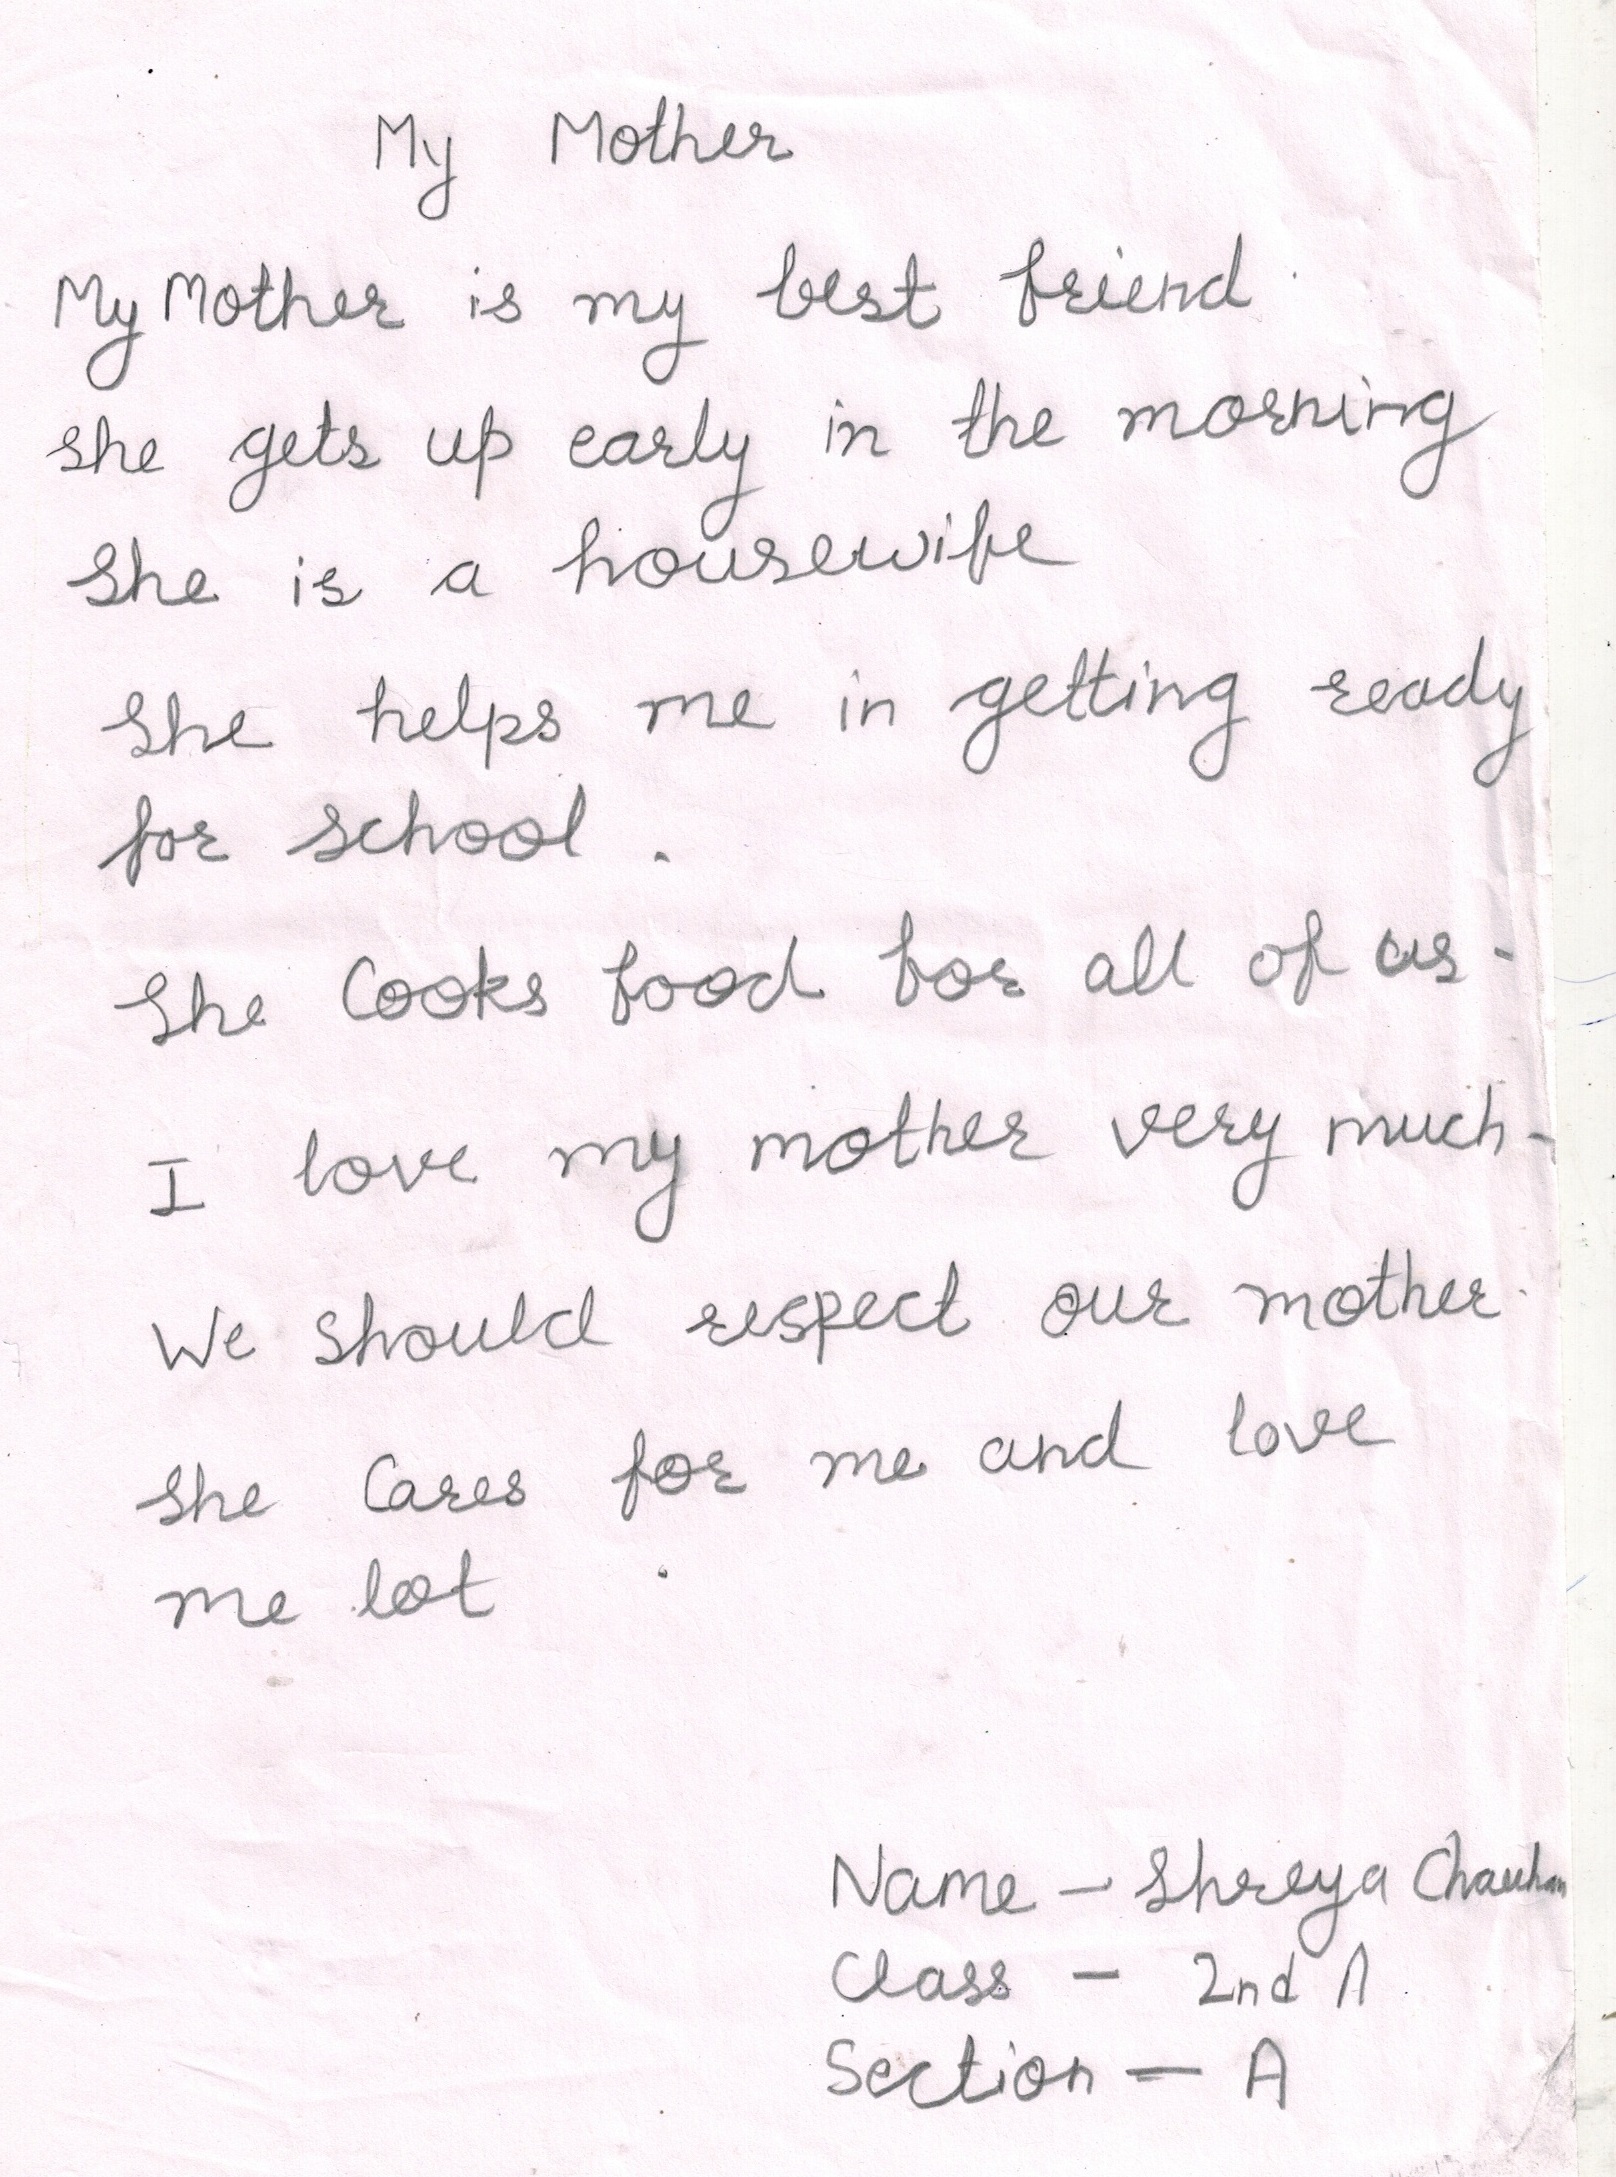 My Mother
My Mother is my best friend.
she gets up early in the morning
She is a housewife
She helps me in getting ready
for school.
She Cooks food for all of us.
I love my mother very much.
We should respect our mother.
She Cares for me and love
me lot.
Name - Shreya Chauhan
Class - 2nd A
Section - A